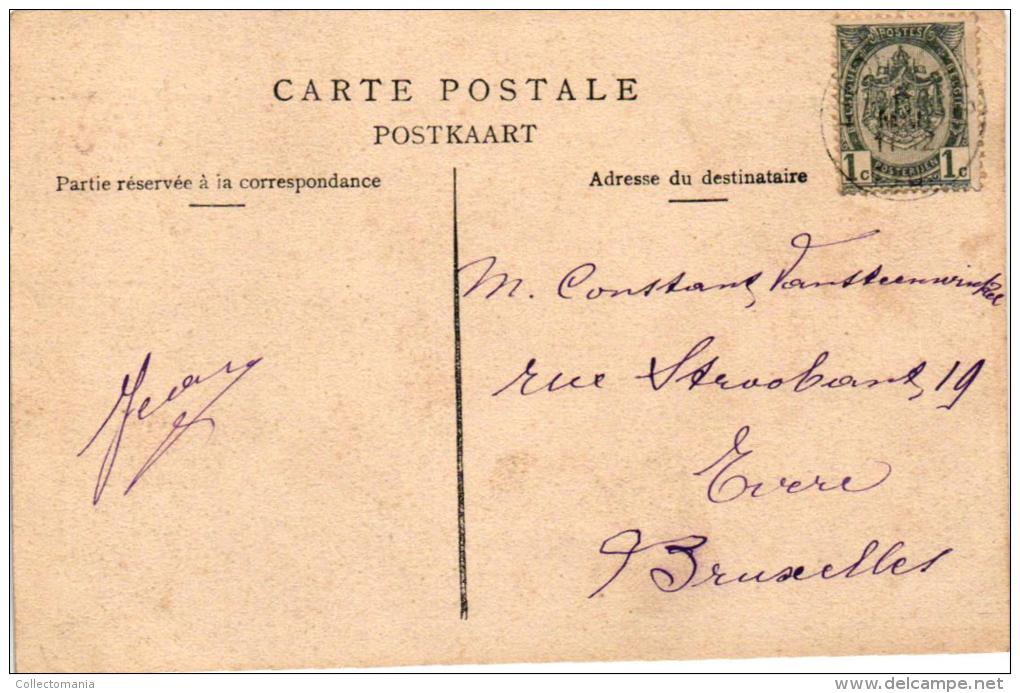 CARTE POSTALE
POSTKAART
Partie réservée à la correspondance
Adresse du destinataire
POSTES
BELGIQUE
BELGIE
1c POSTERIJEN 1c
M. Constant Vansteenwinkel
rue Stroobant, 19
Evere
Bruxelles
Collectomania
delcampe.net